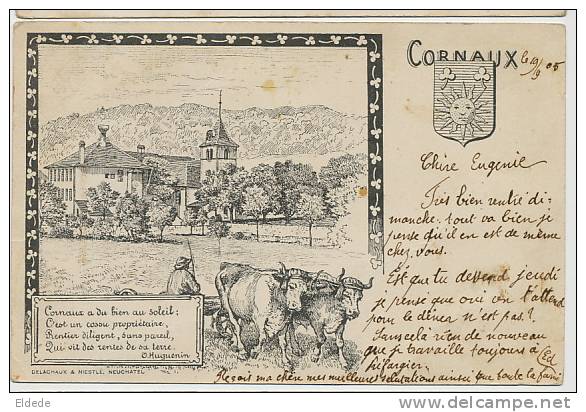 CORNAUX
le 19/9 05
Chère Eugenie
Très bien rentré di-
manche. tout va bien je
pense qu'il en est de même
chez vous.
Est que tu devend jeudi
je pense que oui on t'attend
pour le dîner n'est pas?
Sans cela rien de nouveau
que je travaille toujours a
Reçois ma chère mes meilleures salutations ainsi que toute la fami
Cornaux a du bien au soleil;
C'est un cossu propriétaire,
Rentier diligent, sans pareil,
Qui vit des rentes de sa terre.
O. Huguenin
DELACHAUX & NIESTLÉ, NEUCHATEL
Eldede
delcampe.net